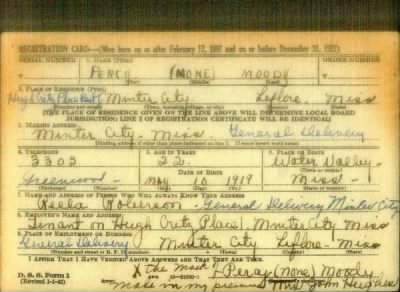 REGISTRATION CARD—(Men born on or after February 17, 1897 and on or before December 31, 1921)
SERIAL NUMBER 1. NAME (Print) ORDER NUMBER
PERCY (NONE) MOODY
2. PLACE OF RESIDENCE (Print)
Minter City Leflore Miss
(THE PLACE OF RESIDENCE GIVEN ON THE LINE ABOVE WILL DETERMINE LOCAL BOARD
JURISDICTION; LINE 2 OF REGISTRATION CERTIFICATE WILL BE IDENTICAL)
3. MAILING ADDRESS
Minter City - Miss General Delivery
4. TELEPHONE 5. AGE IN YEARS 6. PLACE OF BIRTH
3303 22 Water Valley
DATE OF BIRTH
Greenwood 10 1919 Miss
7. NAME AND ADDRESS OF PERSON WHO WILL ALWAYS KNOW YOUR ADDRESS
Roberson - General Delivery Minter City
8. EMPLOYER'S NAME AND ADDRESS
Tenant on Hugh Place Minter City Miss
9. PLACE OF EMPLOYMENT OR BUSINESS
General Delivery Minter City Leflore Miss
I AFFIRM THAT I HAVE VERIFIED ABOVE ANSWERS AND THAT THEY ARE TRUE.
D. S. S. Form 1 X the mark of Percy (None) Moody
(Revised 1-1-42) made in my presence Mrs John Hughes